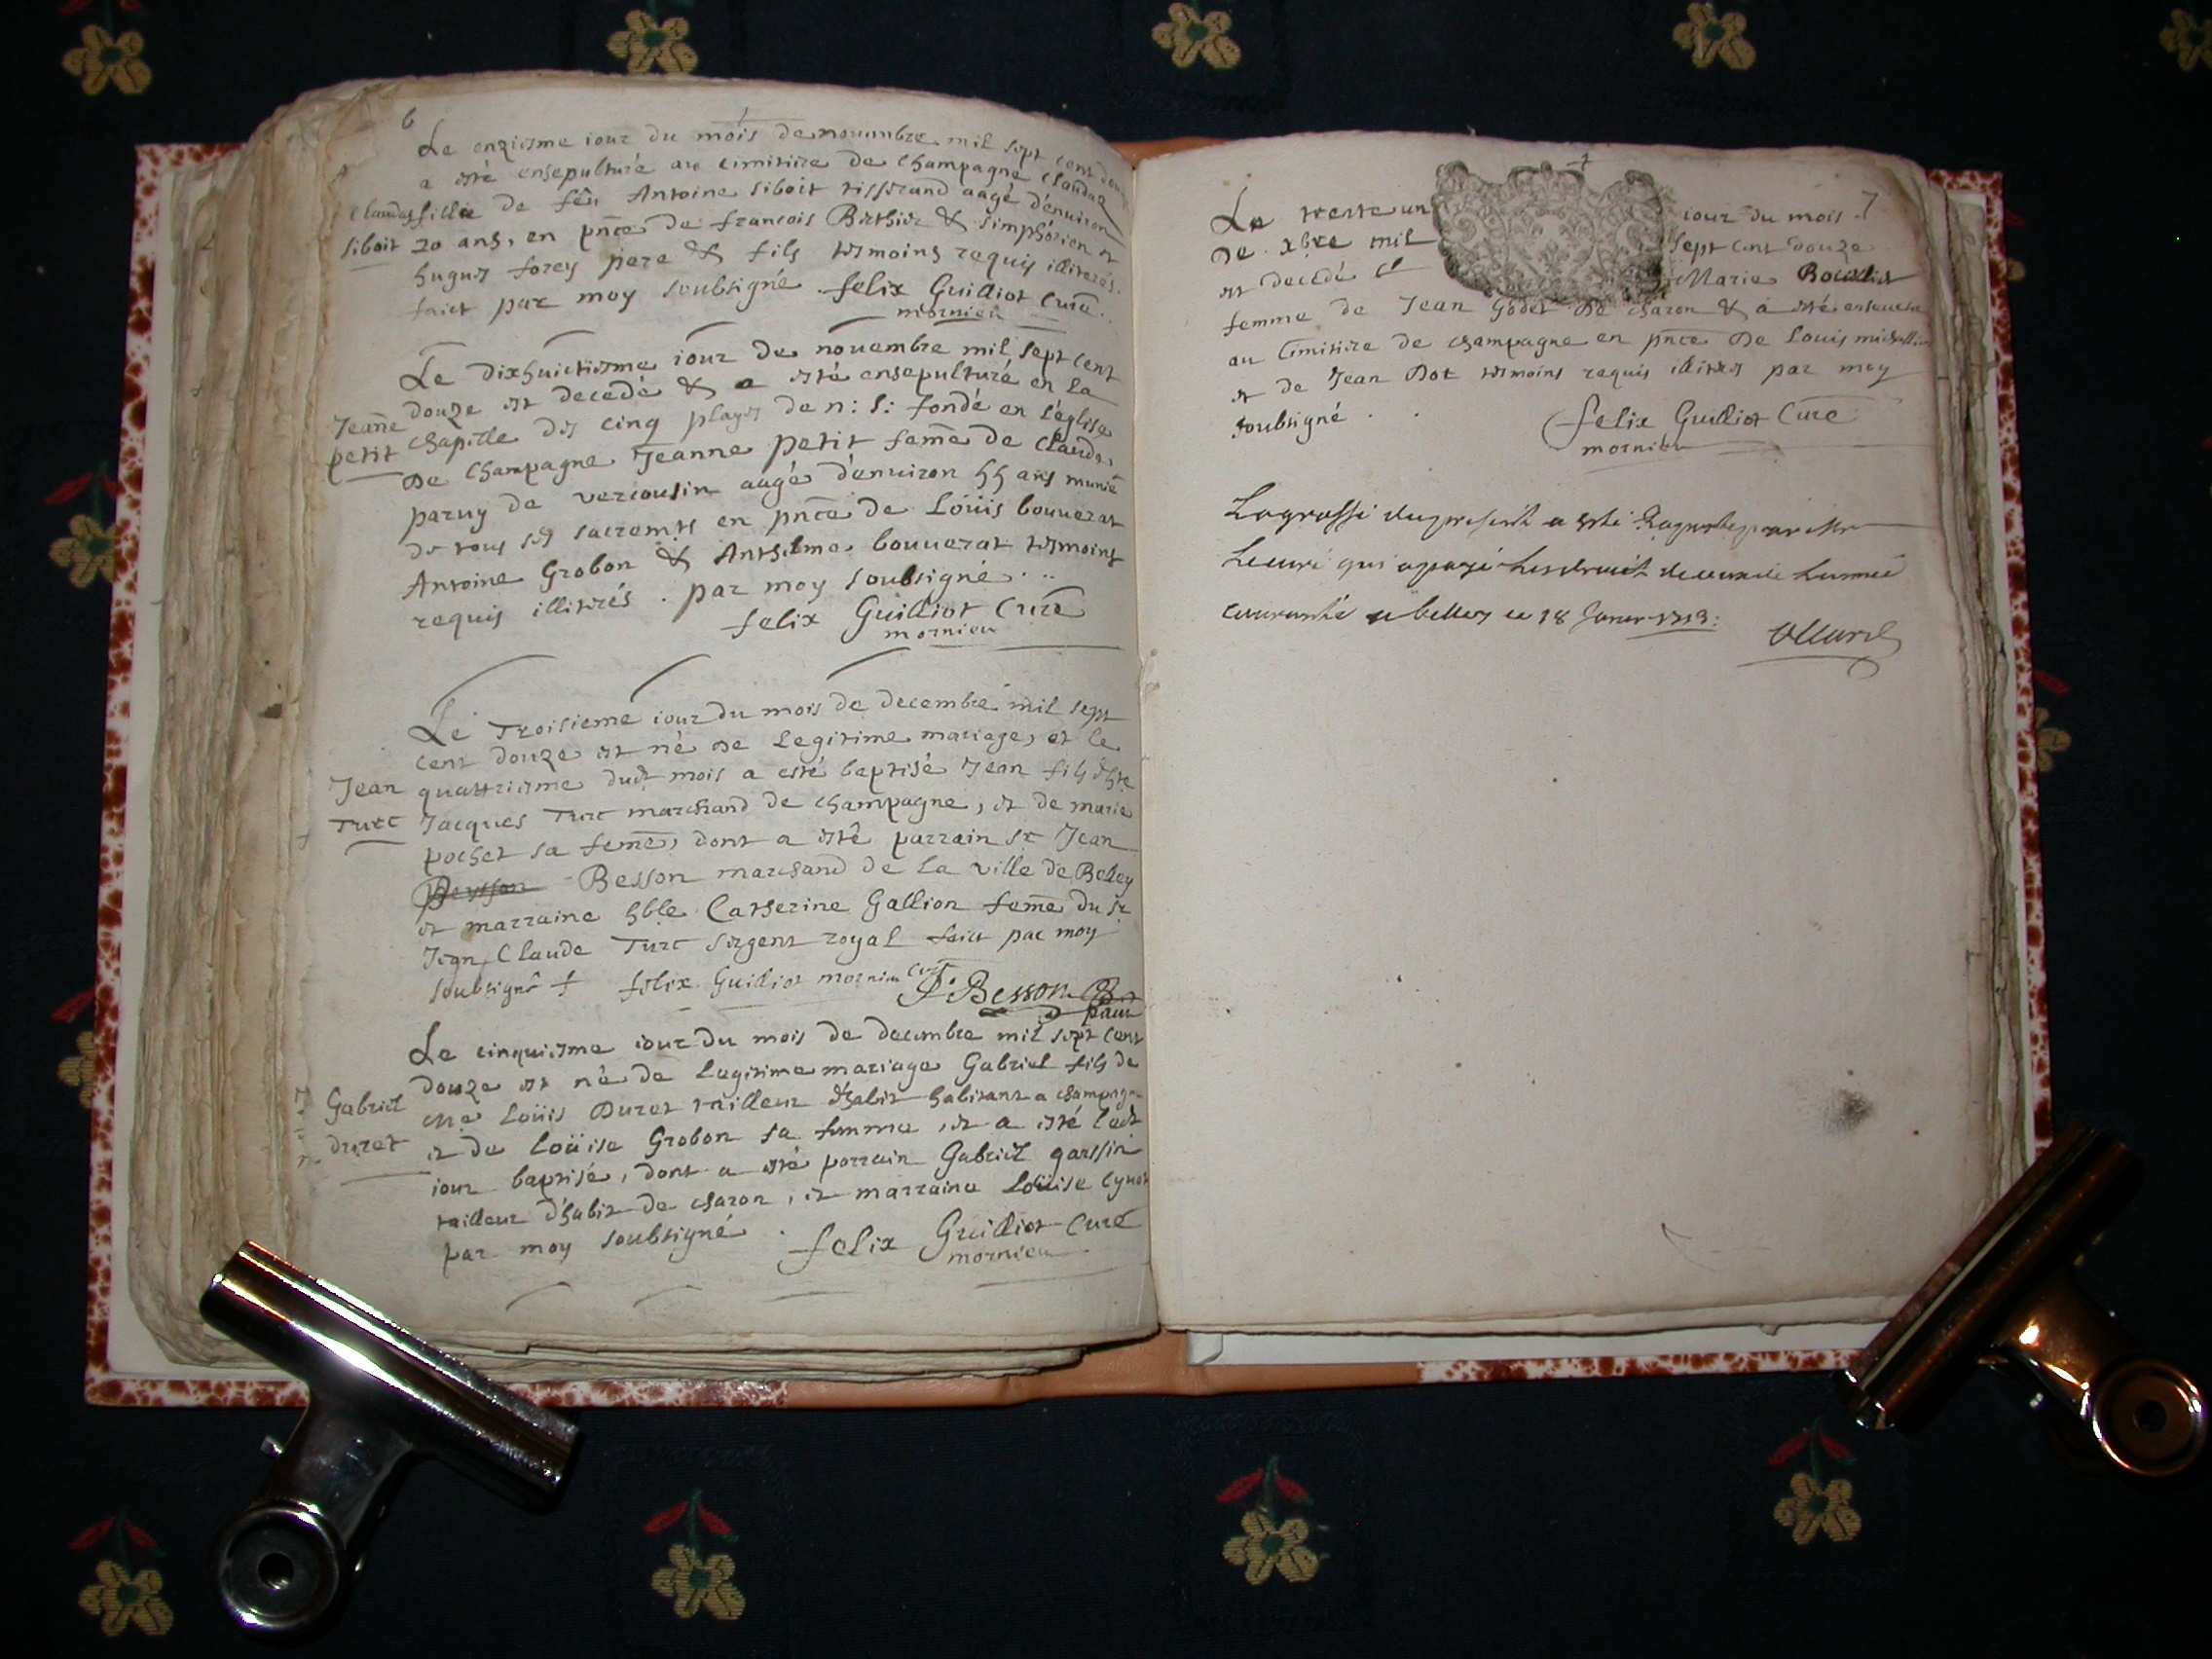 6
Le onziesme iour du mois de nouembre mil sept cent
a esté ensepulturé au cimitiere de Champagne Claudaz
Claudaz fillie de feu Antoine siboit tisserand aagé d'enuiron
siboit 20 ans, en pnce de francois Berthier & simphorien et
hugues forey pere & fils tesmoins requis illiterés.
faict par moy soubsigné. felix Guilliot Curé.
mornieu
Le dixhuictiesme iour de nouembre mil sept cent
douze est decedé & a esté ensepulturé en la
Jeane
chapelle des cinq playes de n: s: fondé en l'église
petit
De Champagne Jeanne petit feme de Claude
paruy de vercousin aagé d'enuiron 55 ans munie
de tous ses sacremts en pnce de Loüis bouuerat
Antoine Grobon & Anthelme bouuerat tesmoins
requis illiterés. par moy soubsigné...
felix Guilliot Curé
mornieu
Le Troisieme iour du mois de decembre mil sept
cent douze est né de Legitime mariage, et le
Jean quattriesme dudt mois a esté baptisé Jean fils
Turc Jacques Turc marchand de champagne, et de marie
pochet sa feme, dont a esté parrain sr Jean
Besson marchand de La ville de Belley
et marraine hble Catherine Gallion feme du sr
Jean Claude Turc sergent royal faict par moy
soubsigné + felix Guilliot mornieu Curé
J. Besson
Le cinquiesme iour du mois de decembre mil sept cent
douze est né de Legitime mariage Gabriel fils de
Gabriel Loüis Duret tailleur d'habit habitant a champagne
duret et de Loüise Grobon sa femme, et a esté ledt
iour baptisé, dont a esté parrain Gabriel garssin
tailleur d'habit de charon, et marraine Loüise
par moy soubsigné. felix Guilliot Curé
mornieu
7
Le trente un iour du mois
De xbre mil sept cent douze
est decedé Marie
femme de Jean Godet De charon & a esté
au Cimitiere de champagne en pnce De Louis
et de Jean Dot tesmoins requis illiterés par moy
soubsigné. felix Guilliot Curé
mornieu
La grosse du present a esté
Le curé qui a payé Les droict
courante a belley ce 18 1713: